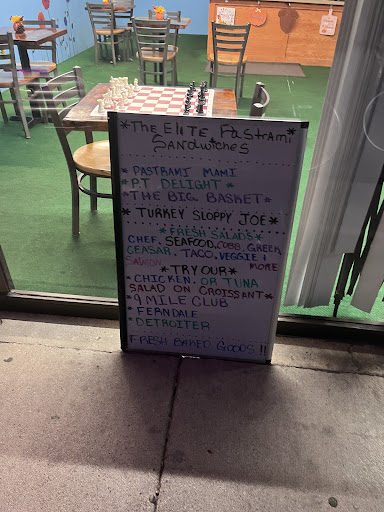 *The Elite Pastrami*
Sandwiches
* PASTRAMI MAMI
* P.T. DELIGHT *
* THE BIG BASKET *
* TURKEY SLOPPY JOE *
* FRESH SALADS *
CHEF, SEAFOOD, COBB, GREEK
CEASAR, TACO, VEGGIE +
SALMON MORE
* TRY OUR *
* CHICKEN, OR TUNA
SALAD ON CROISSANT *
* 9 MILE CLUB
* FERNDALE
* DETROITER
FRESH BAKED GOODS !!